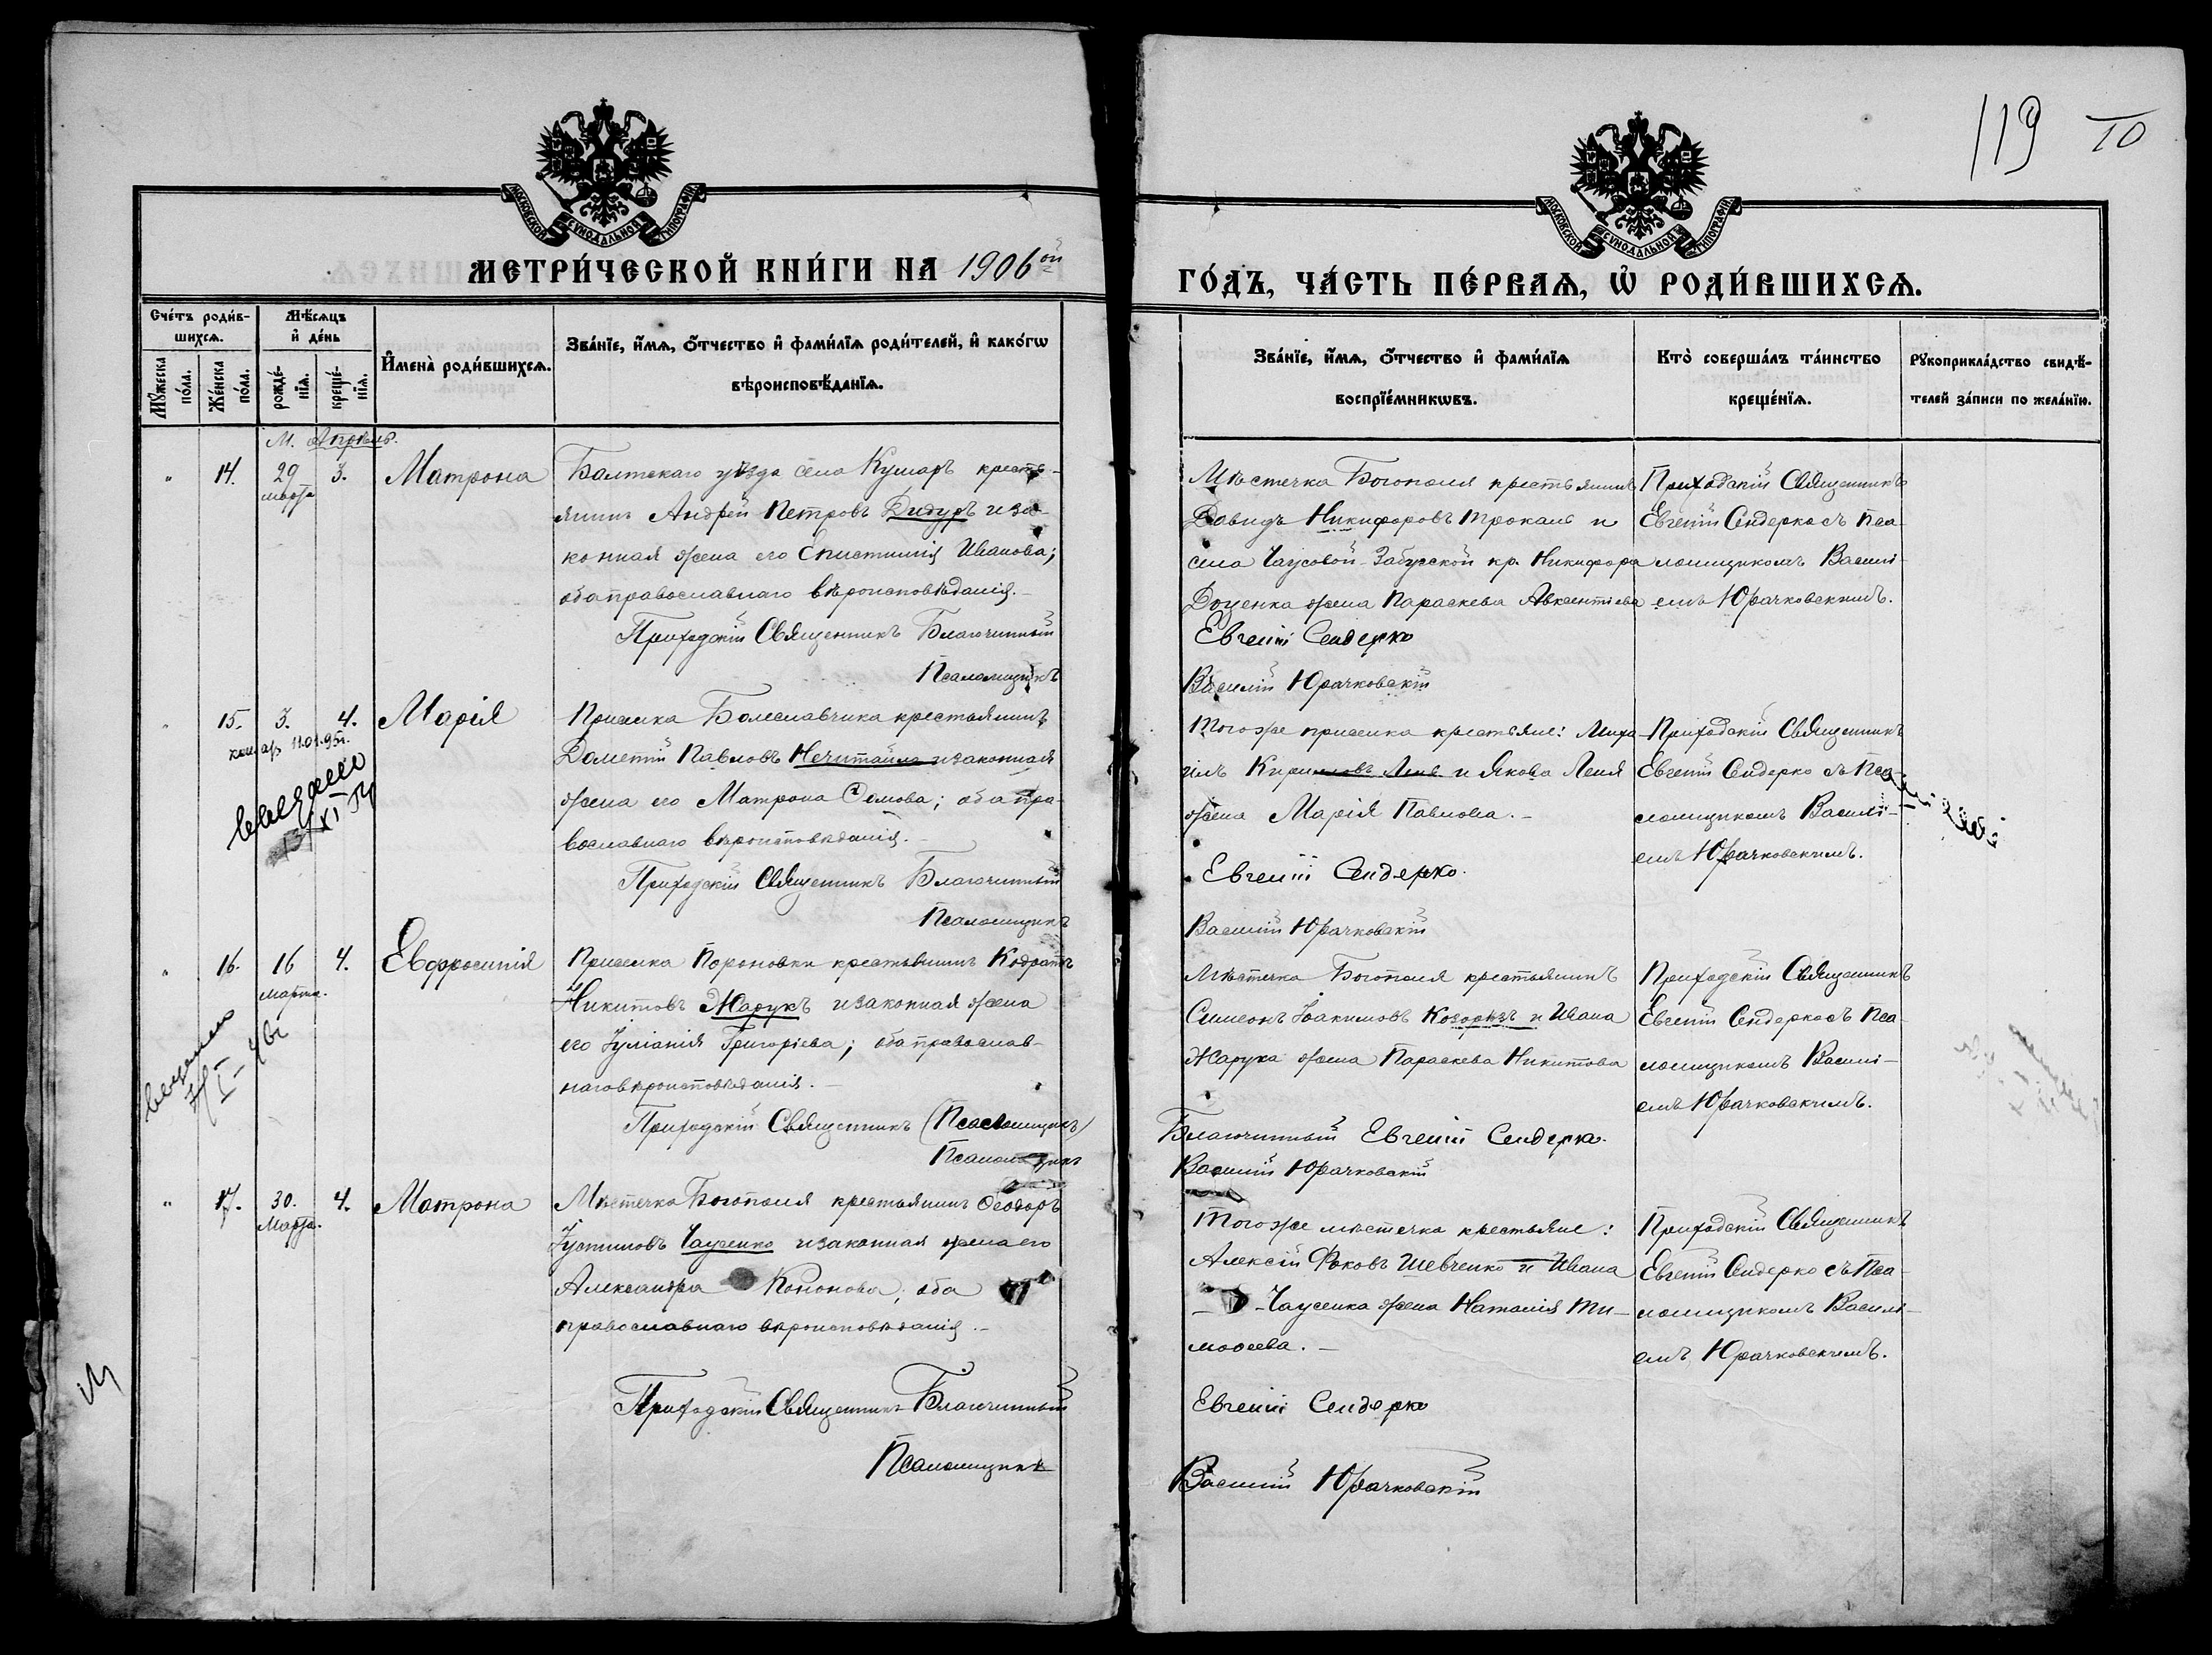 119 10
МОСКОВСКОЙ СѴНОДАЛЬНОЙ ТИПОГРАФІИ
МОСКОВСКОЙ СѴНОДАЛЬНОЙ ТИПОГРАФІИ
МЕТРИ́ЧЕСКОЙ КНИ́ГИ НА 1906ой
ГО́ДЪ, ЧА́СТЬ ПЕ́РВАѦ, Ѡ РОДИ́ВШИХСѦ.
Сче́тъ роди́в-
шихсѧ.
Мꙋ́жеска по́ла.
Же́нска по́ла.
Мѣ́сѧцъ
и҆ де́нь
рожде́-
нїѧ.
креще́-
нїѧ.
И҆мена̀ роди́вшихсѧ.
Зва́нїе, и҆́мѧ, ѻ҆́тчество и҆ фами́лїѧ роди́телей, и҆ како́гѡ
вѣроисповѣ́данїѧ.
Зва́нїе, и҆́мѧ, ѻ҆́тчество и҆ фами́лїѧ
воспрїе́мникѡвъ.
Кто̀ соверша́лъ та́инство
креще́нїѧ.
Рꙋкоприкла́дство свидѣ́-
телей за́писи по жела́нїю.
М. Апрѣль.
" 14. 29 марта 3. Матрона
Балтскаго уѣзда села Кумаръ кресть-
янинъ Андрей Петровъ Дидуръ и за-
конная жена его Епистимія Иванова;
оба православнаго вѣроисповѣданія.
Приходскій Священникъ Благочинный
Псаломщикъ
Мѣстечка Богополя крестьянинъ
Давидъ Никифоровъ Трокаль и
села Чаусовой-Забугской кр. Никифора
Доценка жена Параскева Авксентіева
Евгеній Сендерко
Василій Юрачковскій
Приходскій Священникъ
Евгеній Сендерко съ Пса-
ломщикомъ Василі-
емъ Юрачковскимъ.
" 15. 3. 4. Марія
11.01.95г.
Приселка Болеславчика крестьянинъ
Дометій Павловъ Нечитайло и законная
жена его Матрона Сомова; оба пра-
вославнаго вѣроисповѣданія.
Приходскій Священникъ Благочинный
Псаломщикъ
Того же приселка крестьяне: Миха-
илъ Кирилловъ Леня и Якова Леня
жена Марія Павлова.
Евгеній Сендерко.
Василій Юрачковскій
Приходскій Священникъ
Евгеній Сендерко съ Пса-
ломщикомъ Василі-
емъ Юрачковскимъ.
" 16. 16 марта. 4. Евфросинія
Приселка Пороновки крестьянинъ Кодратъ
Никитовъ Жарукъ и законная жена
его Іуліанія Григоріева; оба православ-
наго вѣроисповѣданія.
Приходскій Священникъ (Псаломщикъ)
Псаломщикъ
Мѣстечка Богополя крестьянинъ
Симеонъ Іоакимовъ Козоризъ и Ивана
Жарука жена Параскева Никитова
Благочинный Евгеній Сендерко.
Василій Юрачковскій
Приходскій Священникъ
Евгеній Сендерко съ Пса-
ломщикомъ Василі-
емъ Юрачковскимъ.
" 17. 30. Марта. 4. Матрона
Мѣстечка Богополя крестьянинъ Ѳеодоръ
Іустиновъ Чаусенко и законная жена его
Александра Кононова; оба
православнаго вѣроисповѣданія.
Приходскій Священникъ Благочинный
Псаломщикъ
Того же мѣстечка крестьяне:
Алексій Фоковъ Шевченко и Ивана
Чаусенка жена Наталія Ти-
моѳеева.
Евгеній Сендерко
Василій Юрачковскій
Приходскій Священникъ
Евгеній Сендерко съ Пса-
ломщикомъ Василі-
емъ Юрачковскимъ.